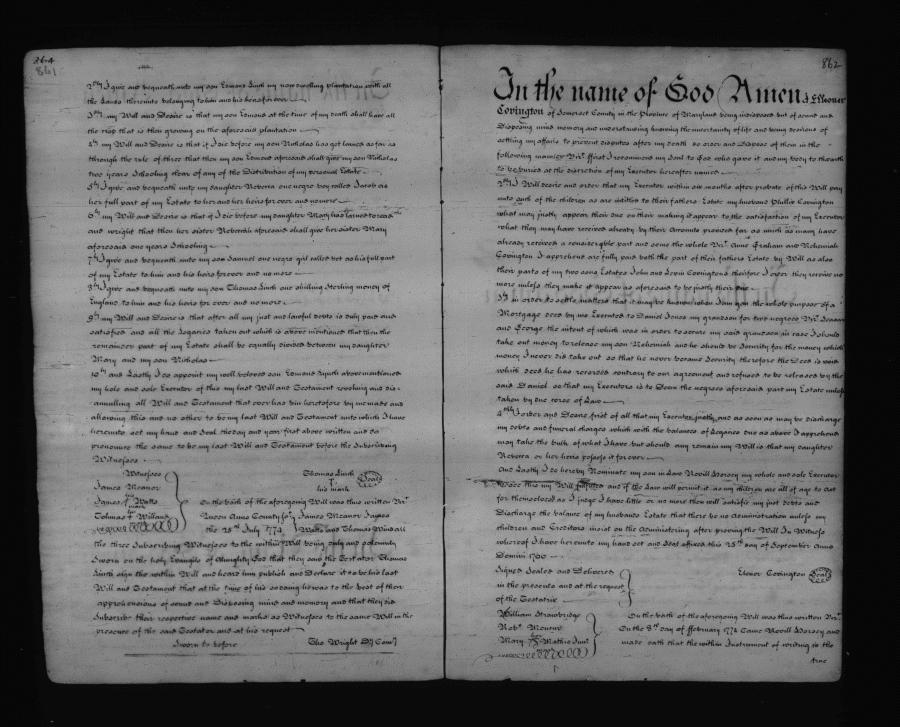 264
861
2ndly I give and bequeath unto my son Edmund Linth my now dwelling plantation with all
the Lands thereunto belonging to him and his heirs for ever
3dly my Will and Desire is that my son Edmund at the time of my death shall have all
the crop that is then growing on the aforesaid plantation
4th my Will and Desire is that if I die before my son Nicholas has got learned as far as
through the rule of three that then my son Edmund aforesaid shall give my son Nicholas
two years Schooling clear of any of the Distribution of my personal Estate
5th I give and bequeath unto my daughter one negro boy called Jacob as
her full part of my Estate to her and her heirs for ever and no more
6th my Will and Desire is that if I die before my daughter Mary has larned to read
and wright that then her sister aforesaid shall give her sister Mary
aforesaid one years Schooling
7th I give and bequeath unto my son Samuel one negro girl called as his full part
of my Estate to him and his heirs for ever and no more
8th I give and bequeath unto my son Thomas Linth one shilling Sterling money of
England to him and his heirs for ever and no more
9th my Will and Desire is that after all my just and lawful debts is duly paid and
satisfied and all the Legacies taken out which is above mentioned that then the
remainder part of my Estate shall be equally divided between my daughter
Mary and my son Nicholas
10th and Lastly I do appoint my well beloved son Edmund Linth above mentioned
my hole and sole Executor of this my last Will and Testament revoking and dis-
annulling all Will and Testament that ever has bin heretofore by me made and
allowing this and no other to be my last Will and Testament unto which I have
hereunto set my hand and Seal the day and year first above written and do
pronounce the same to be my last Will and Testament before the Subscribing
Witnesses
Witnesses
James Meanor
James Watts
mark
Thomas Linth
his mark
Seal
On the back of the aforegoing Will was thus written Vizt.
Queen Anns County sc. James Meanor James
the 28th July 1774 Watts and Thomas
the three Subscribing Witnesses to the within Will being duly and solemnly
Sworn on the holy Evangels of Almighty God that they saw the Testator Thomas
Linth sign the within Will and heard him publish and Declare it to be his last
Will and Testament that at the time of his so doing he was to the best of their
apprehensions of sound and Disposing mind and memory and that they did
Subscribe their respective names and marks as Witnesses to the same Will in the
presence of the said Testator and at his request
Sworn to before Tho Wright Dy Comy
862
In the name of God Amen I Elloner
Covington of Somerset County in the Province of Maryland being indisposed but of sound and
Disposing mind memory and understanding knowing the uncertainty of life and being desirous of
settling my affairs to prevent disputes after my death do order and dispose of them in the
following manner Vizt. first I recommend my Soul to God who gave it and my body to the earth
to be buried at the discretion of my Executor hereafter named
2ndly I Will Desire and order that my Executor within six months after probate of this Will pay
unto each of the children as are intitled to their fathers Estate my husband Phillip Covington
what may justly appear their due on their making it appear to the satisfaction of my Executor
what they may have received already by their Accounts proved so far as much as many have
already received a considerable part and some the whole Vizt. Anne Graham and Nehemiah
Covington I apprehend are fully paid both the part of their fathers Estate by Will as also
their parts of my two sons Estates John and Levin Covingtons therefore I order they receive no
more unless they make it appear as aforesaid to be justly their due
3dly in order to settle matters that it may be known when I am gon the whole purpose of a
Mortgage deed by me Executed to Daniel Jones my grandson for two negroes Vizt.
and George the intent of which was in order to secure my said grandson in case I should
take out money to release my son Nehemiah and he should be Security for the money which
money I never did take out so that he never became Security therefore the Deed is void
which deed he has recorded contrary to our agreement and refused to be released by the
said Daniel so that my Executors is to Deem the negroes aforesaid part my Estate unless
taken by due corse of Law
4thly I order and Desire first of all that my Executor justly and as soon as may be discharge
my debts and funeral charges which with the balances of Legacies due as above I apprehend
may take the bulk of what I have but should any remain my Will is that my daughter
or her heirs possess it for ever
And Lastly I do hereby Nominate my son in Law Nevill my whole and sole Executor
to see this my Will fulfilled and if the Law will permit it as my children are all of age to act
for themselves as I judge I have little or no more then will satisfie my just debts and
Discharge the balance of my husbands Estate that there be no Administration unless my
children and Creditors insist on the Administering after proving the Will In Witness
whereof I have hereunto my hand set and Seal affixed this 25th day of September Anno
Domini 1760
Signed Sealed and Delivered
in the presents and at the request
of the Testatrix
Eloner Covington Seal
William Strawbridge
Robt.
Mary
On the back of the aforegoing Will was thus written Vizt.
On the 8th day of ffebruary 1774 Came Nevill and
made oath that the within Instrument of writing is the
true